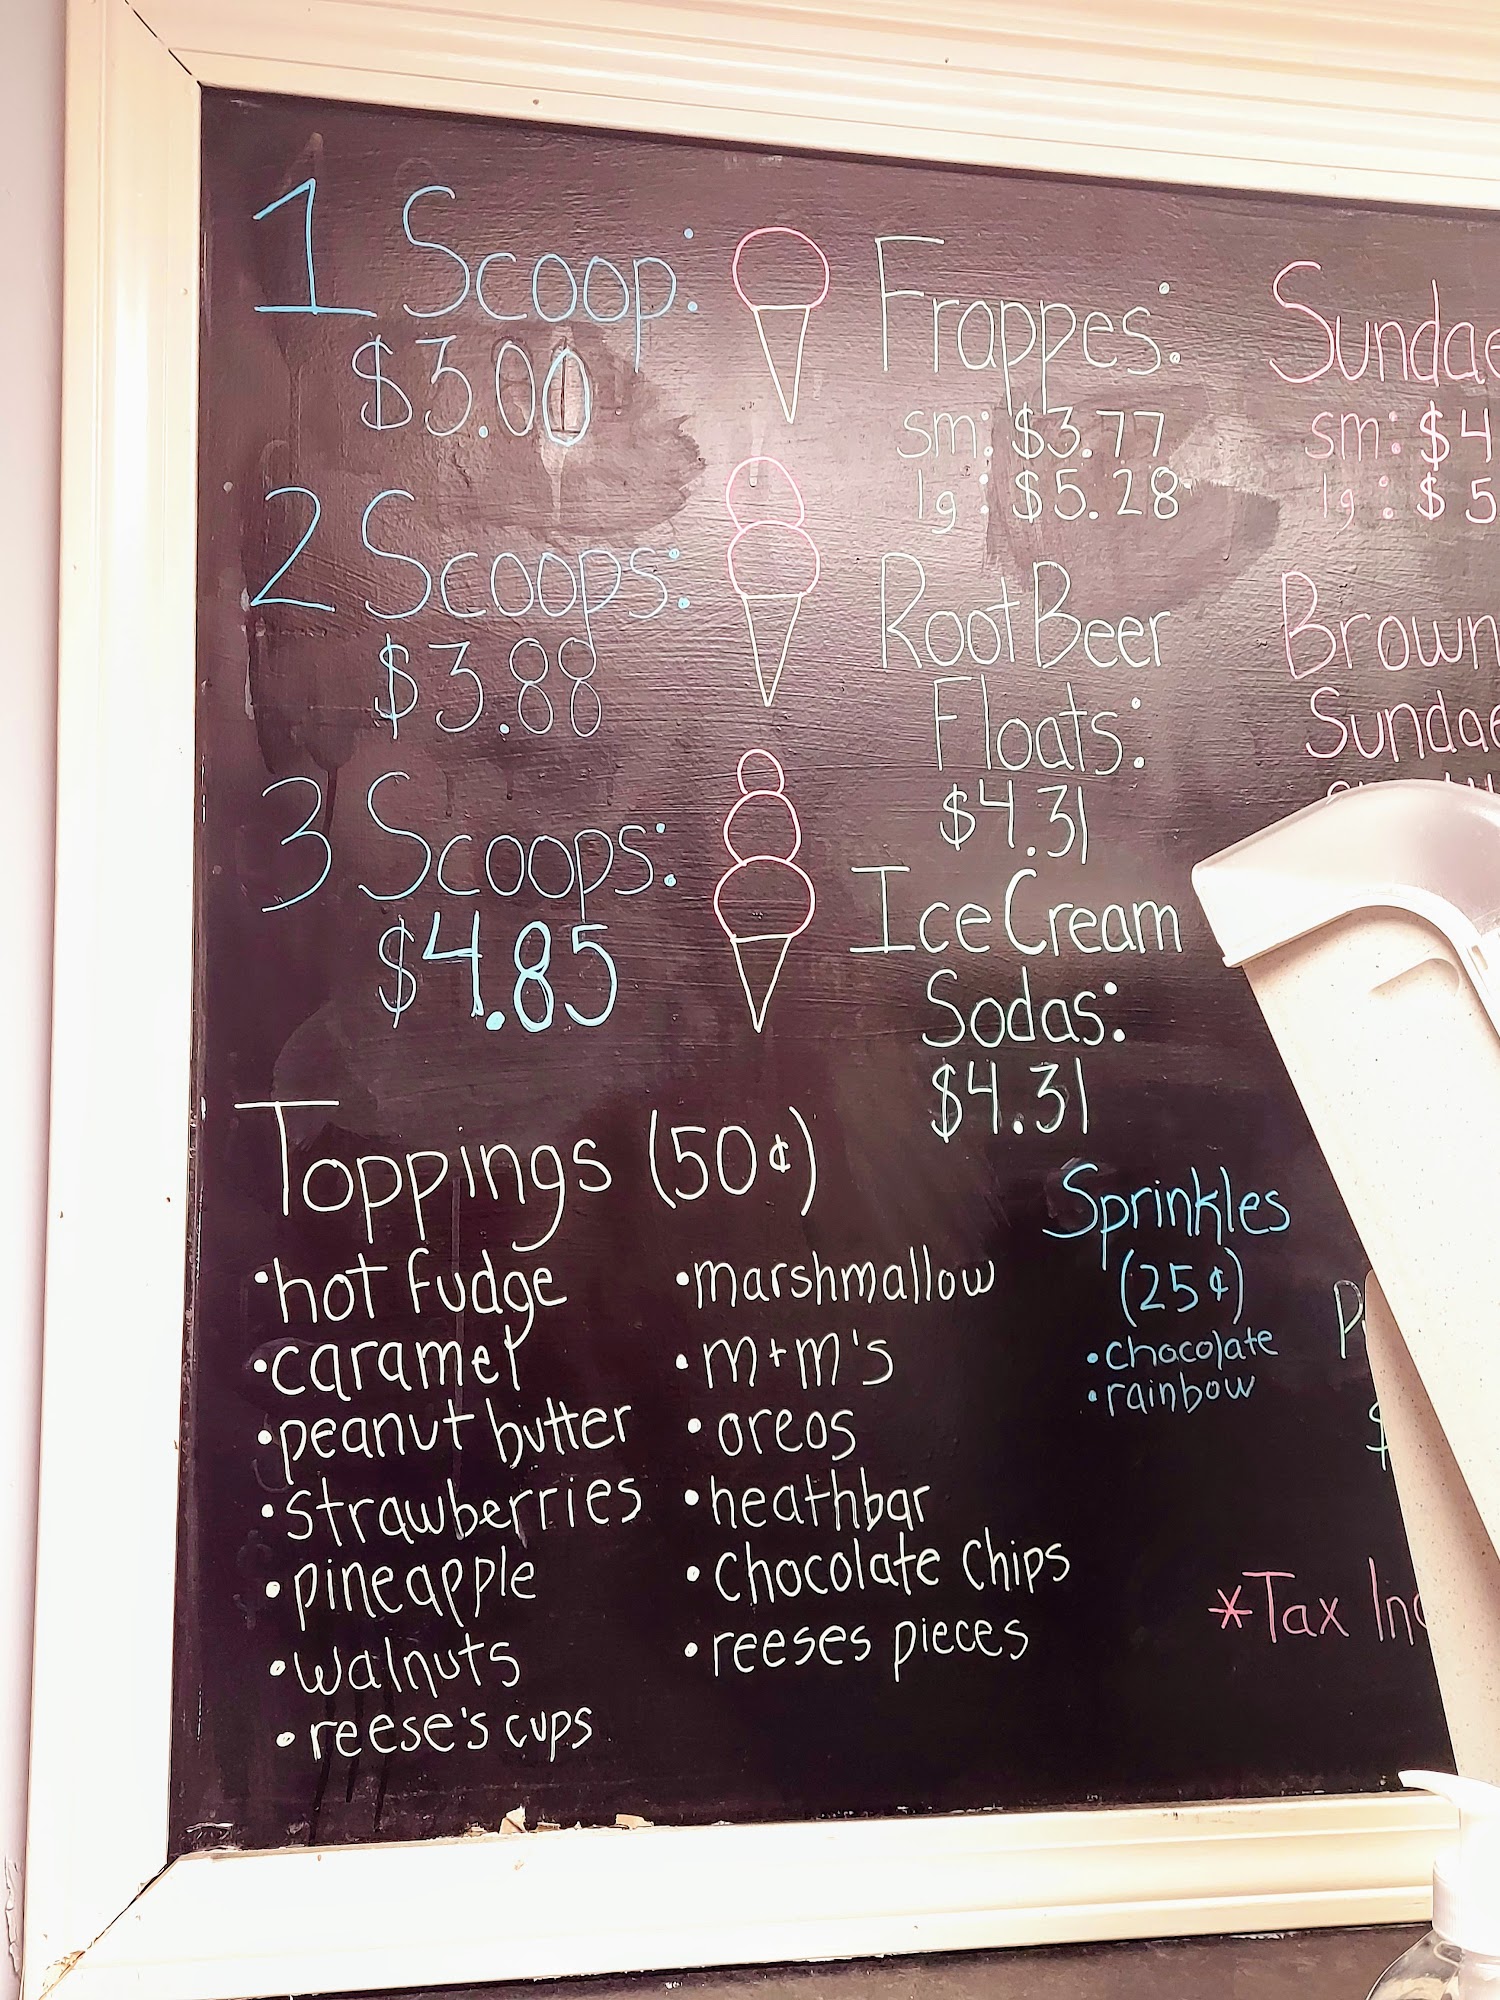 1 Scoop:
$3.00
2 Scoops:
$3.88
3 Scoops:
$4.85
Frappes:
sm: $3.77
lg: $5.28
Root Beer
Floats:
$4.31
Ice Cream
Sodas:
$4.31
Sundae
sm: $4
lg: $5
Brown
Sundae
Toppings (50¢)
•hot fudge
•caramel
•peanut butter
•strawberries
•pineapple
•walnuts
•reese's cups
•marshmallow
•m+m's
•oreos
•heathbar
•chocolate chips
•reeses pieces
Sprinkles
(25¢)
•chocolate
•rainbow
$
*Tax Inc